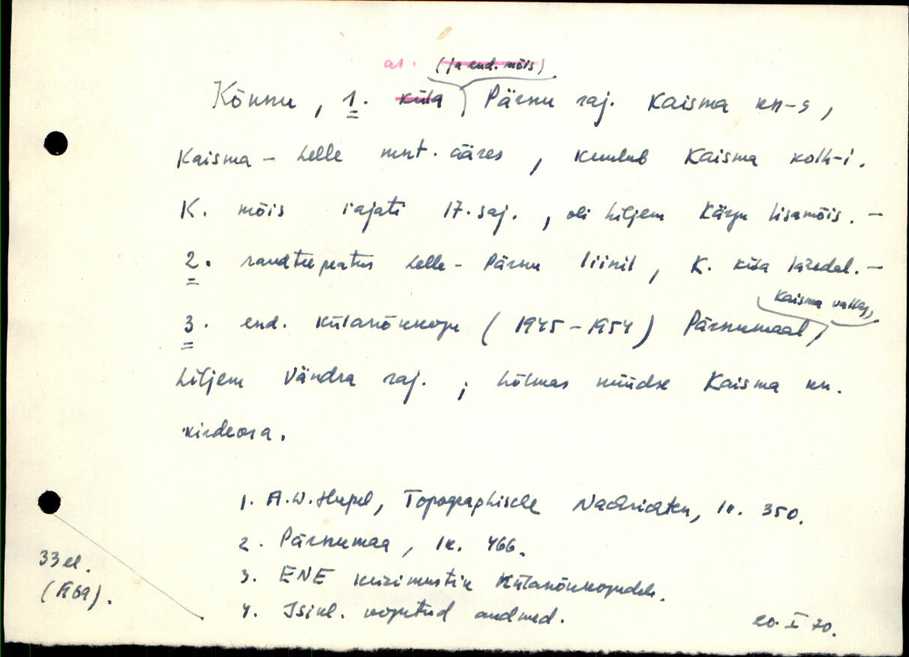 as. (ja end. mõis)
Kõnnu, 1. küla Pärnu raj. Kaisma kn-s,
Kaisma – Lelle mnt. ääres, kuulub Kaisma kolh-i.
K. mõis rajati 17. saj., oli hiljem Käru lisamõis. –
2. raudteepeatus Lelle – Pärnu liinil, K. küla lähedal. –
Kaisma vallas,
3. end. külanõukogu (1945 – 1954) Pärnumaal,
hiljem Vändra raj.; hõlmas nüüdse Kaisma kn.
kirdeosa.
1. A.W. Hupel, Topographische Nachrichten, lk. 350.
2. Pärnumaa, lk. 466.
33 el.
3. ENE küsimustik külanõukogudele.
(1969).
4. Isikl. kogutud andmed.
20. I 70.